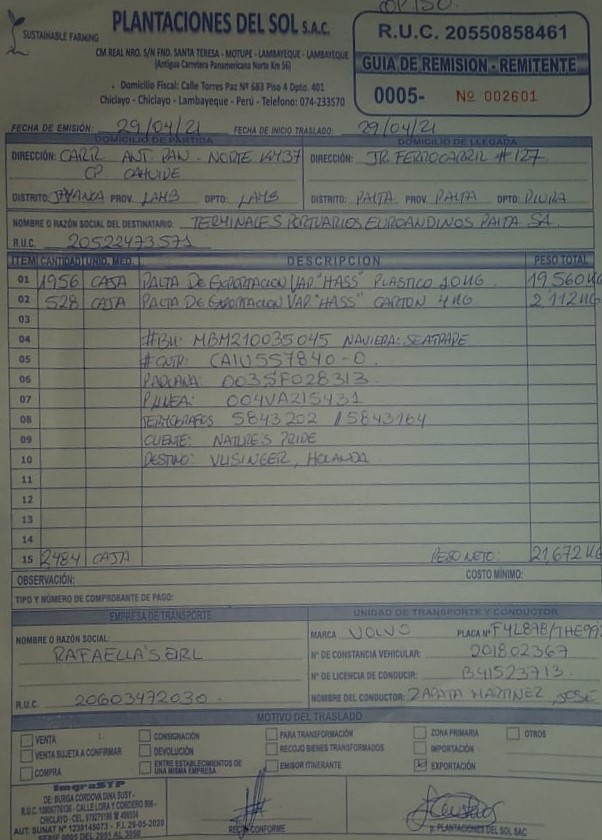 SUSTAINABLE FARMING
PLANTACIONES DEL SOL S.A.C.
CM REAL NRO. S/N FND. SANTA TERESA - MOTUPE - LAMBAYEQUE - LAMBAYEQUE
(Antigua Carretera Panamericana Norte Km 56)
Domicilio Fiscal: Calle Torres Paz Nº 683 Piso 4 Dpto. 401
Chiclayo - Chiclayo - Lambayeque - Perú - Telefono: 074-233570
R.U.C. 20550858461
GUIA DE REMISION - REMITENTE
0005- Nº 002601
FECHA DE EMISIÓN: 29/04/21 FECHA DE INICIO TRASLADO: 29/04/21
DOMICILIO DE PARTIDA DOMICILIO DE LLEGADA
DIRECCIÓN: CARR ANT PAN. NORTE K437 DIRECCIÓN: JR FERROCARRIL #127
CP CAHUIDE
DISTRITO: JAYANCA PROV. LAMB DPTO: LAMB DISTRITO: PAITA PROV. PAITA DPTO: PIURA
NOMBRE O RAZÓN SOCIAL DEL DESTINATARIO: TERMINALES PORTUARIOS EUROANDINOS PAITA SA
R.U.C. 20522473571
ITEM CANTIDAD UNID. MED. DESCRIPCION PESO TOTAL
01 1956 CAJA PALTA DE EXPORTACION VAR "HASS" PLASTICO 10KG 19,560KG
02 528 CAJA PALTA DE EXPORTACION VAR "HASS" CARTON 4KG 2112KG
03
04 #BK: MBM210035045 NAVIERA: SEATRADE
05 #CNTR: CAIU557840-0
06 P.ADUANA: 003SF028313
07 P.LINEA: 004VA215431
08 TERMOGRAFOS 5843202 / 5843164
09 CLIENTE: NATURE'S PRIDE
10 DESTINO: VLISINGER, HOLANDA
11
12
13
14
15 2484 CAJA PESO NETO: 21,672KG
OBSERVACIÓN: COSTO MÍNIMO:
TIPO Y NÚMERO DE COMPROBANTE DE PAGO:
EMPRESA DE TRANSPORTE UNIDAD DE TRANSPORTE Y CONDUCTOR
NOMBRE O RAZÓN SOCIAL: MARCA VOLVO PLACA Nº F4L878/THE997
RAFAELLA'S EIRL Nº DE CONSTANCIA VEHICULAR: 201802367
Nº DE LICENCIA DE CONDUCIR: B41523713
R.U.C. 20603472030 NOMBRE DEL CONDUCTOR: ZAPATA MARTINEZ JOSE
MOTIVO DEL TRASLADO
VENTA CONSIGNACIÓN PARA TRANSFORMACIÓN ZONA PRIMARIA OTROS
VENTA SUJETA A CONFIRMAR DEVOLUCIÓN RECOJO BIENES TRANSFORMADOS IMPORTACIÓN
COMPRA ENTRE ESTABLECIMIENTOS DE UNA MISMA EMPRESA EMISOR ITINERANTE EXPORTACIÓN
ImgraSTP
DE: BURGA CORDOVA DINA SUSY -
CALLE LORA Y CORDERO 906 -
AUT. SUNAT Nº 1239145073 - F.I. 29-05-2020
SERIE 0005 DEL 2551 AL 3050
RECIBI CONFORME
p. PLANTACIONES DEL SOL SAC